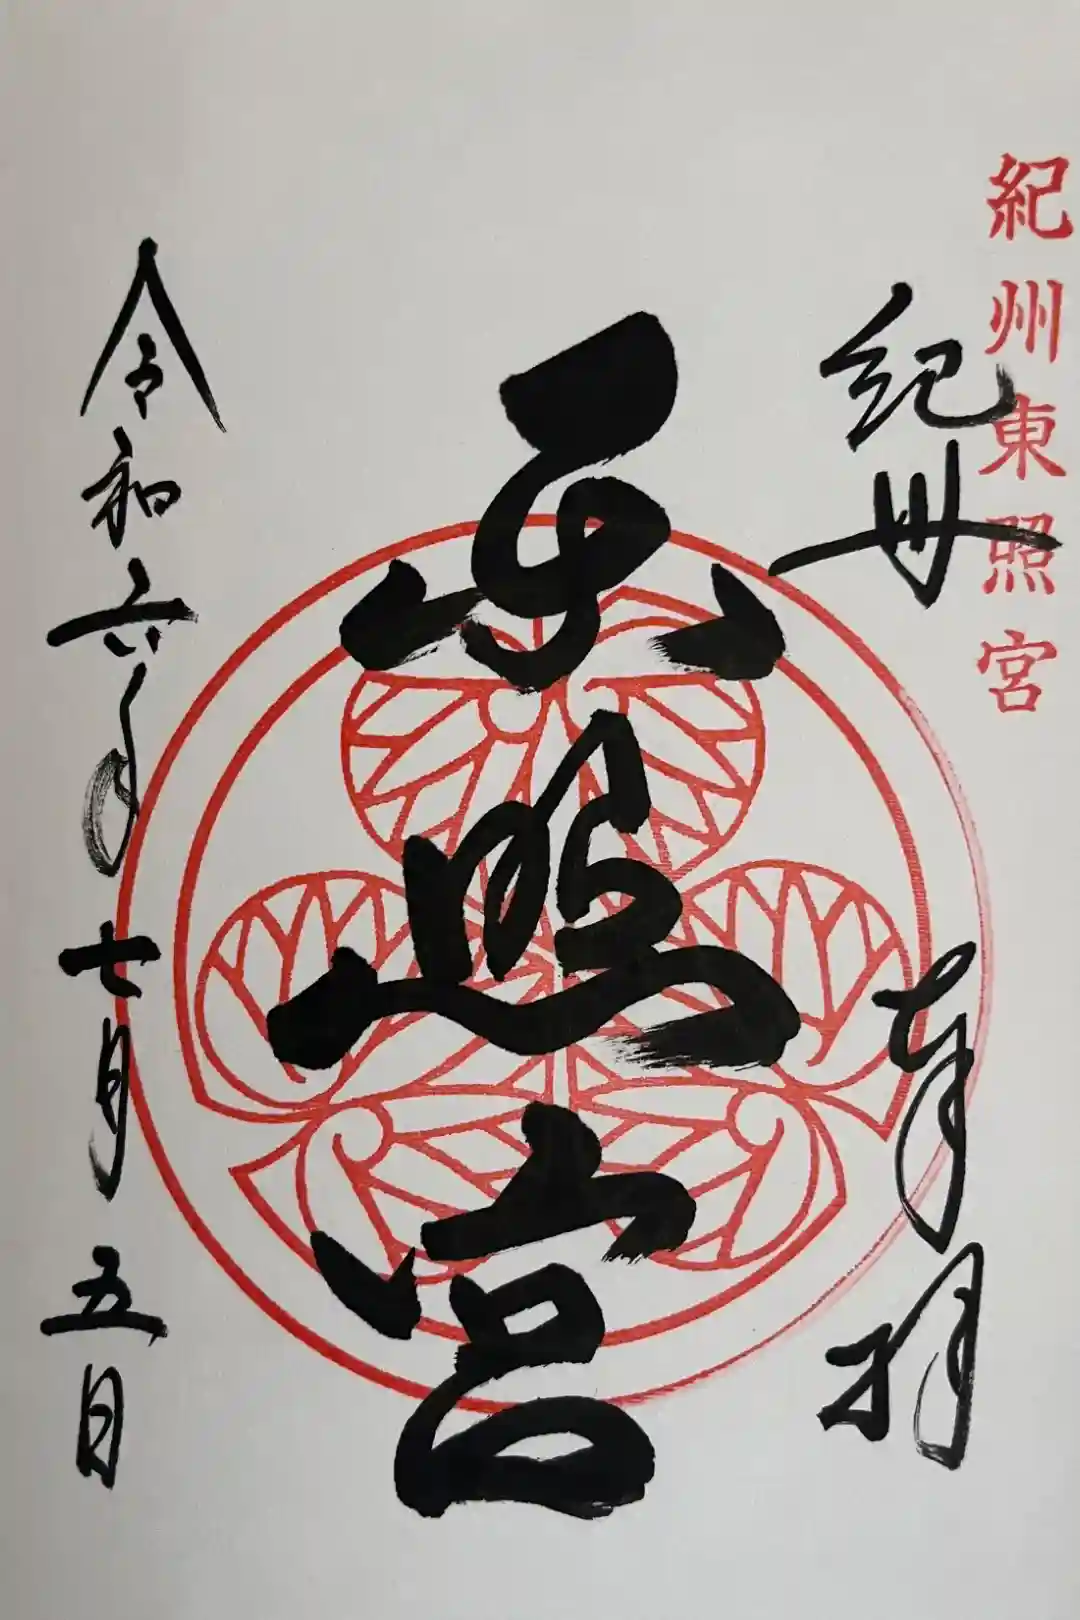 紀州東照宮
紀州
奉拝
東照宮
令和六年七月五日